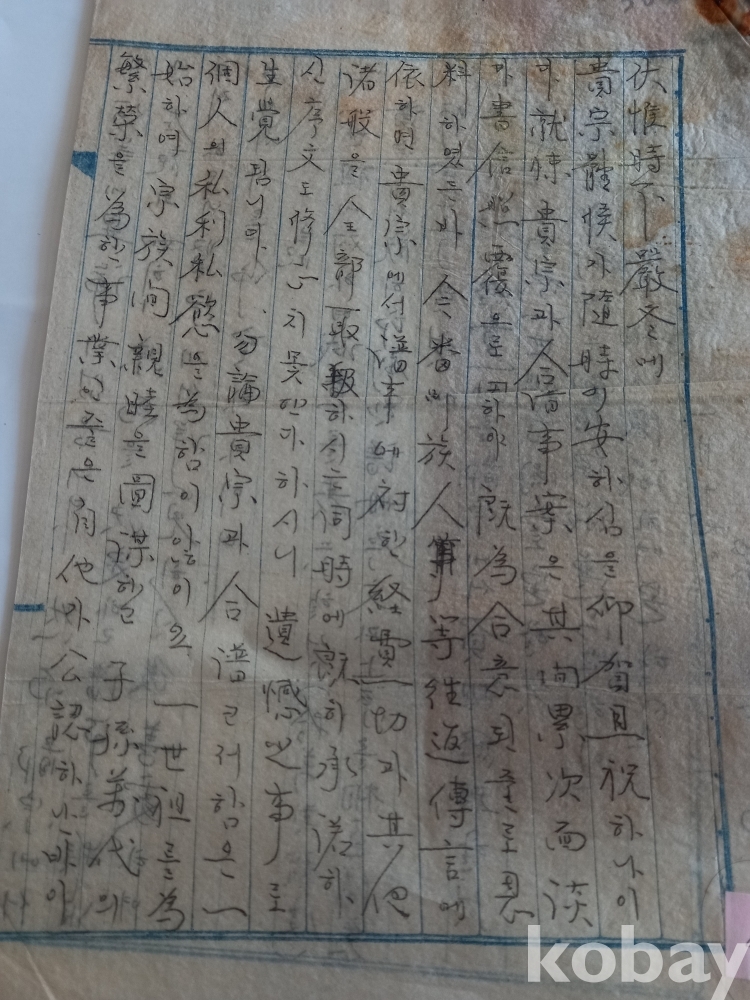 伏惟時下嚴冬에
貴宗體候가隨時이安하심을仰賀且祝하나이
다就悚貴宗과合譜事案은其間累次面談
과書信照覆으로因하야既為合意되줄로思
料하였든바今番 族人 等往返傳言에
依하면貴宗에서譜事에対한経費一切과其他
諸般을全部 하시는同時에 承諾하
신序文도修 치못한다하시니遺憾之事로
生覺됩니다. 勿論貴宗과合譜고저함은一
個人의私利私慾을為함이안이요一世祖를為
始하여宗族间親睦을圖謀하고子孫萬代의
繁榮을為한事業인줄은自他가公認하는바이
kobay